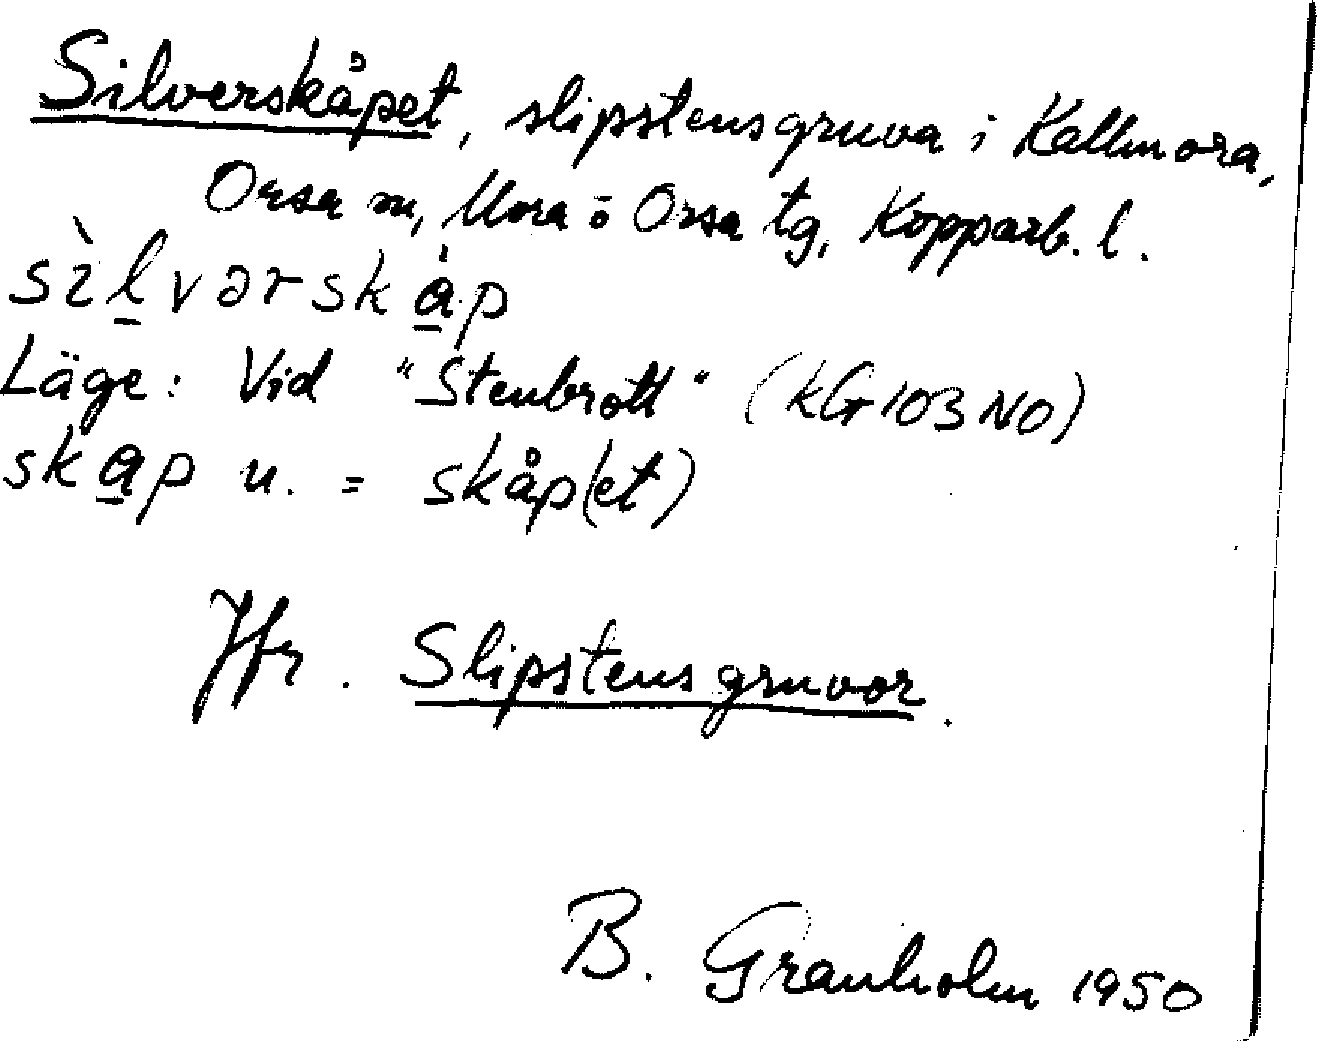 Silverskåpet, slipstensgruva i Kallmora,
Orsa sn, Mora o Orsa tg, Kopparb. l.
sìl̠vərskà̠p
Läge: Vid "Stenbrott" (kG 103 NO)
ska̠p n. = skåp(et)
Jfr. Slipstensgruvor.
B. Granholm 1950